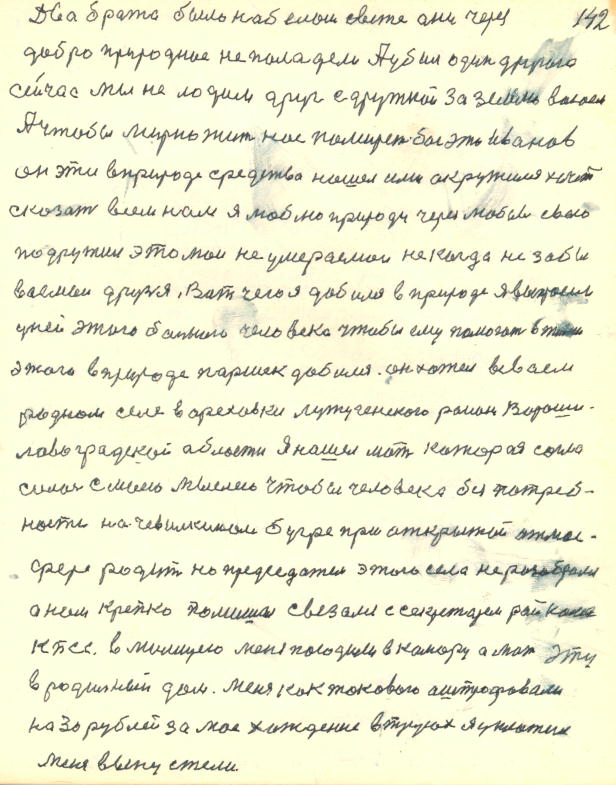 Два брата было на белом свете ани через 142
добро природное неполадели А убил один другога
сейчас мы не лодим друг с дружкой За землю воюем
А чтобы мирно жит нас помирет бог это Иванов
он эти в природе средства нашел ими окружился хочит
сказат всем нам я люблю природу через любви свою
подружил это мои не умераемои некогда не забы
ваемои друзя. Ват чего я добился в природе Я выпросил
у ней этого больного человека чтобы ему помогат в
этого в природе паршек добился. он хотел в своем
родном селе в ореховки лутугенского район Вороши-
ловоградской области Я нашел мат которая согла
силас с моею мыслею чтобы человека без потреб-
ности на чевилкином бугре при открытой атмос-
фере родит но председател этого села не розобрался
а нем крепко помишал свезалс с секретарем райкома
КПСС. в милицею меня посодили в камору а мат эту
в родилный дом. меня как токового аштрофовали
на 30 рублей за мое хождение в трусох я уплотил
меня выпустели.